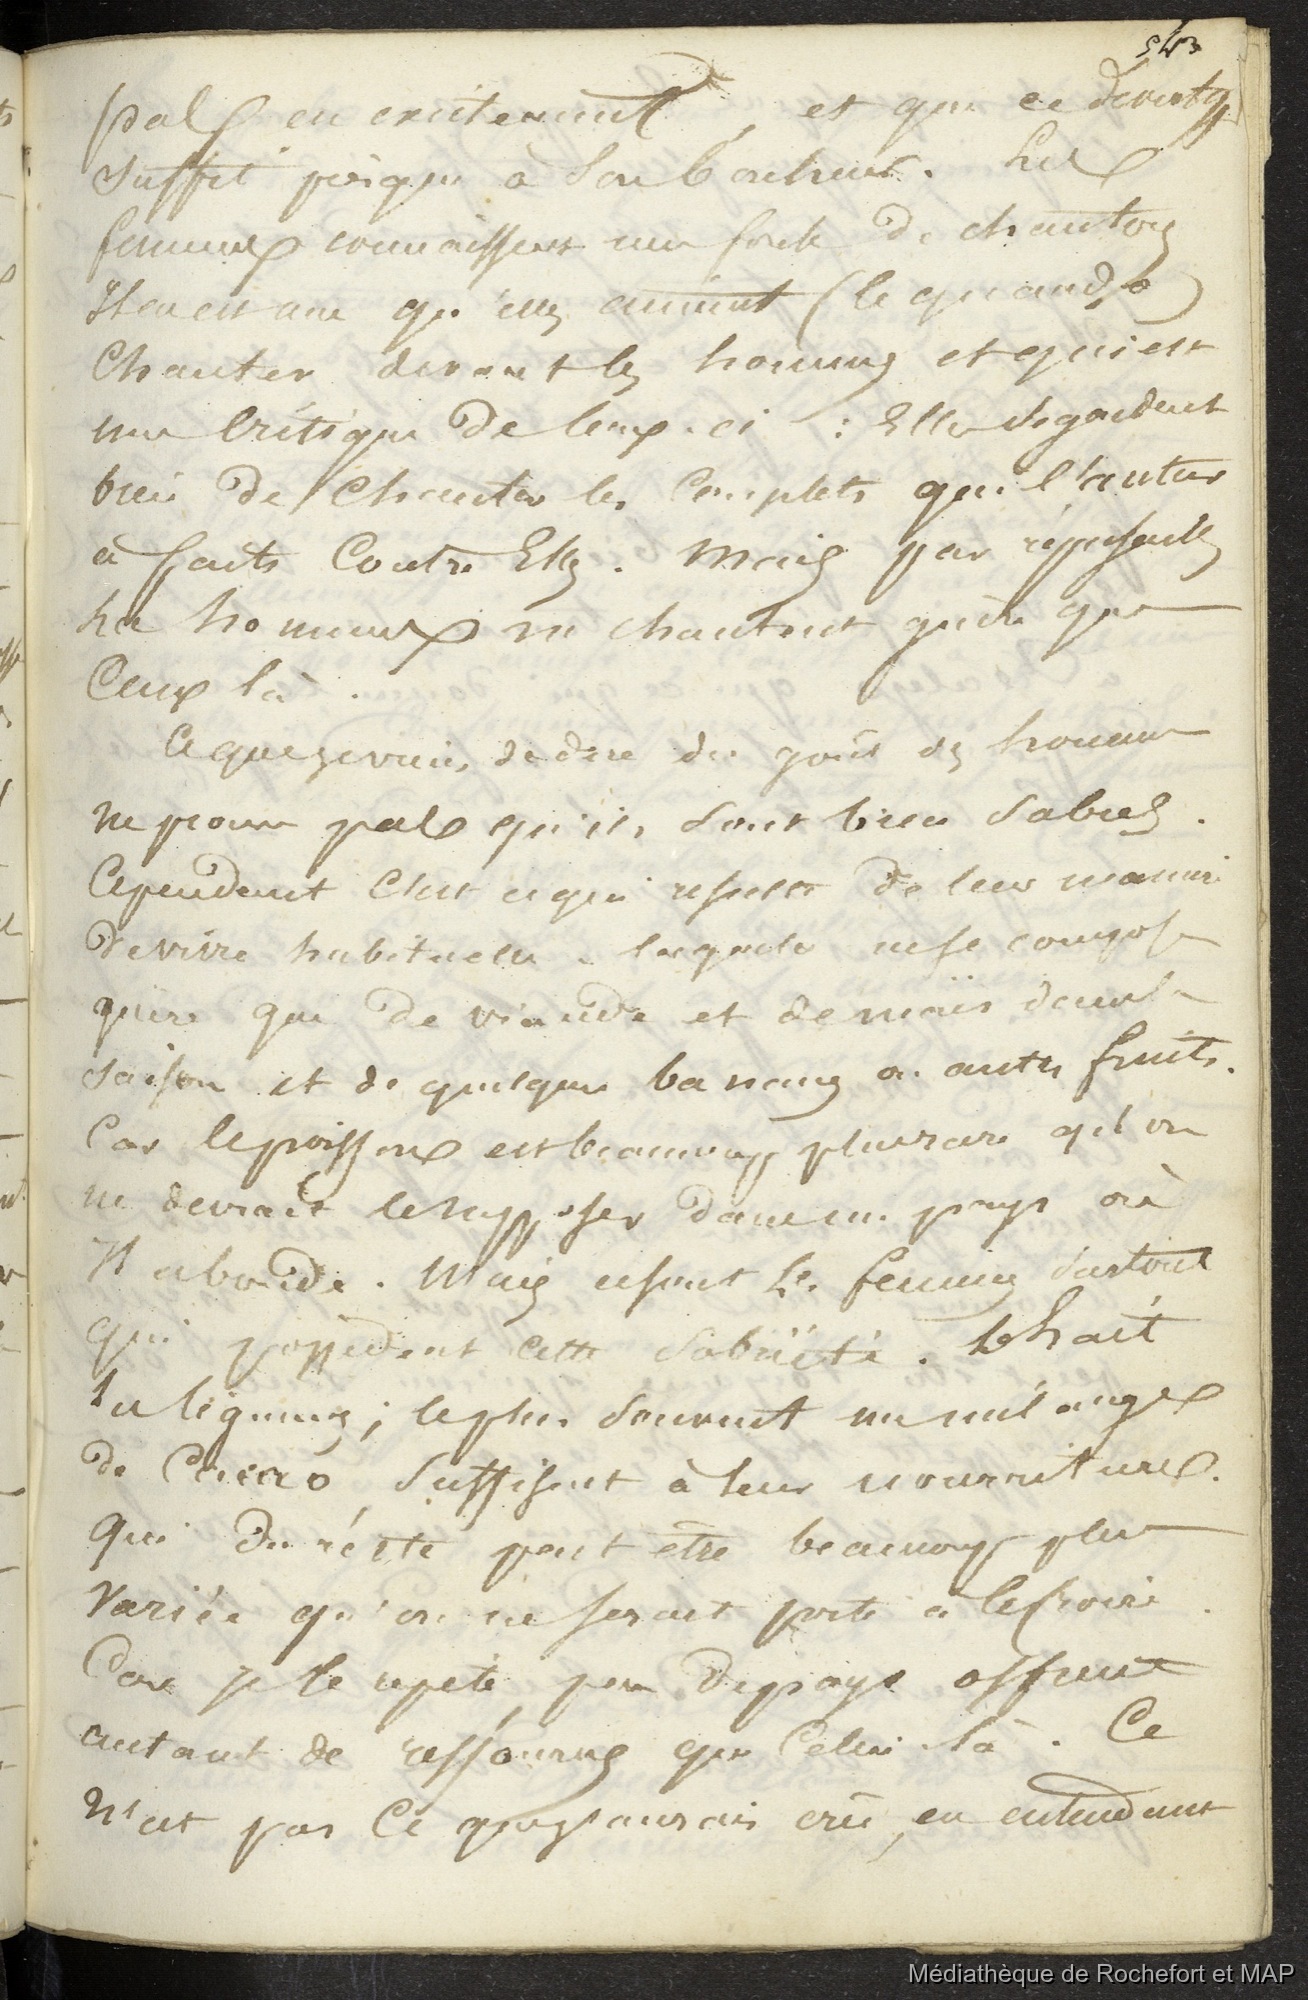 543
pas en eviternunt, et que ce
suffit presque à son bonheur. Les
femmes connaissent une foule de chansons
Il en est une qu'elles aiment (le quando)
Chanter devant les hommes et qui est
une critique de ceux-ci : Elles se gardent
bien de chanter les Couplets que l'auteur
a faits Contre Elles. Mais par représailles
les hommes ne chantent guère que
Ceux là.
Ce que je viens de dire du goût des hommes
ne prouve pas qu'ils sont bien sobres.
Cependant C'est ce qui résulte de leur manière
de vivre habituelle, laquelle ne se compose
guère que de viande et de maïs dans la
saison et de quelques bananes ou autres fruits.
Car le poisson est beaucoup plus rare qu'on
ne devrait le supposer dans un pays où
Il abonde. Mais ce sont les femmes surtout
qui possèdent cette sobriété. Le lait
les légumes; le plus souvent un mélange
de Cacao suffisent à leur nourriture.
qui du reste peut être beaucoup plus
Variée qu'on ne serait porté à le croire.
Car je le repète, peu de pays offrent
autant de ressources que Celui là. Ce
N'est pas Ce que j'aurais crû, en entendant
Médiathèque de Rochefort et MAP